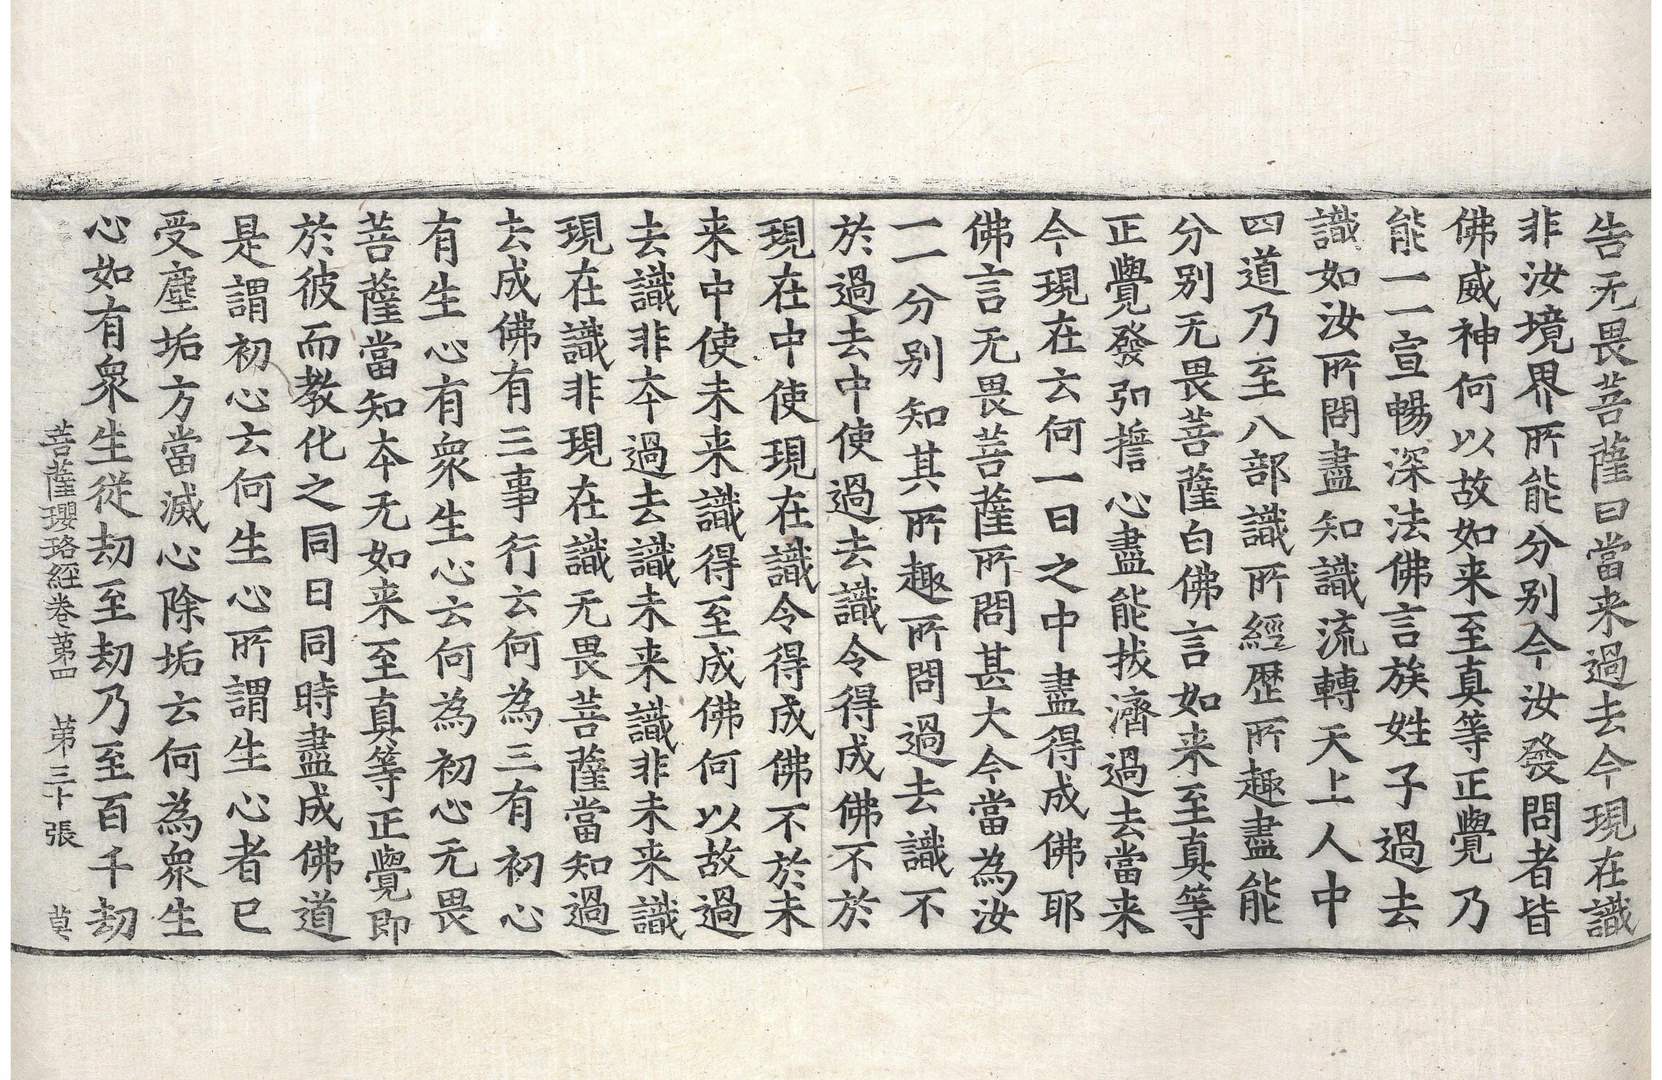 告无畏菩薩曰當来過去今現在識
非汝境界所能分别今汝發問者皆
佛威神何以故如来至真等正覺乃
能一一宣暢深法佛言族姓子過去
識如汝所問盡知識流轉天上人中
四道乃至八部識所經歷所趣盡能
分别无畏菩薩白佛言如来至真等
正覺發弘擔心盡能拔濟過去當来
今現在云何一日之中盡得成佛耶
佛言无畏菩薩所問甚大今當為汝
一一分别知其所趣所問過去識不
於過去中使過去識令得成佛不於
現在中使現在識令得成佛不於未
来中使未来識得至成佛何以故過
去識非夲過去識未来識非未来識
現在識非現在識无畏菩薩當知過
去成佛有三事行云何為三有初心
有生心有衆生心云何為初心无畏
菩薩當知夲无如来至真等正覺即
於彼而教化之同日同時盡成佛道
是謂初心云何生心所謂生心者已
受塵垢方當滅心除垢云何為衆生
心如有衆生從劫至劫乃至百千劫
菩薩瓔珞經卷第四　第三十張　莫